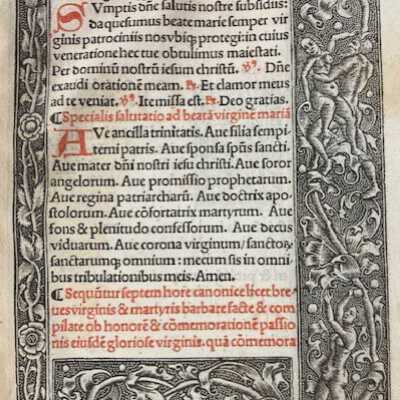 SVmptis dñe salutis nostre subsidijs:
da quesumus beate marie semper vir
ginis patrocinijs nos vbiq; protegi: in cuius
veneratione hec tue obtulimus maiestati.
Per dominũ nostrũ iesum christũ. ꝶ. Dñe
exaudi orationẽ meam. ꝶ. Et clamor meus
ad te veniat. ꝟ. Ite missa est. ꝶ. Deo gratias.
¶ Specialis salutatio ad beatã virginẽ mariã
AVe ancilla trinitatis. Aue filia sempi
terni patris. Aue sponsa spũs sancti.
Aue mater dñi nostri iesu christi. Aue soror
angelorum. Aue promissio prophetarum.
Aue regina patriarcharũ. Aue doctrix apo
stolorum. Aue cõfortatrix martyrum. Aue
fons & plenitudo confessorum. Aue decus
viduarum. Aue corona virginum / sanctoꝝ
sanctarumq; omnium: mecum sis in omni
bus tribulationibus meis. Amen.
¶ Sequũtur septem hore canonice licet bre
ues virginis & martyris barbare facte & com
pilate ob honorẽ & cõmemorationẽ passio
nis eiusdẽ gloriose virginis. quã cõmemora